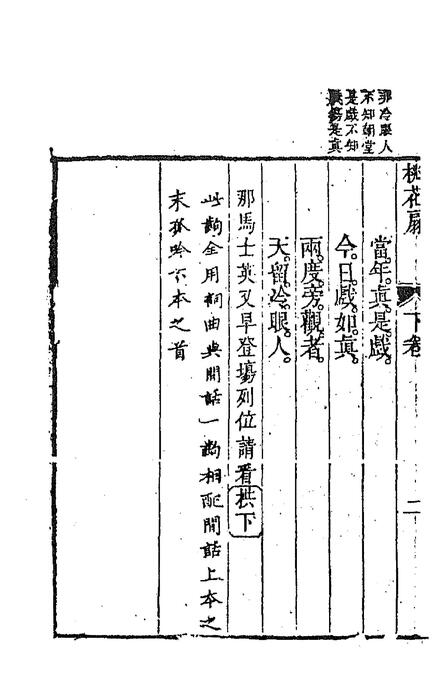 那冷眼人
不知朝堂
是戲不知
戲場是真
桃花扇 下卷 二
當。年。真。是。戲。
今。日。戲。如。真。
兩。度。旁。觀。者。
天。留。冷。眼。人。
那馬士英又早登塲列位請看拱下
此齣全用詞曲與閒話一齣相配閒話上本之
末孤吟下本之首